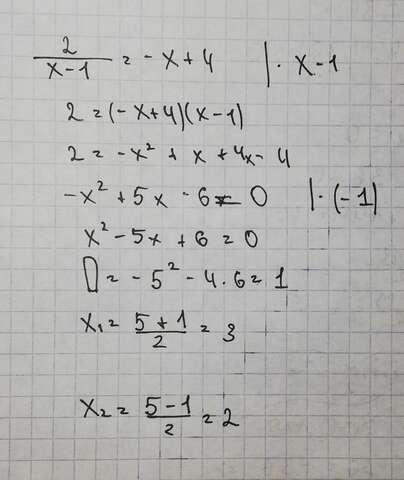 2/(x-1) = -x+4 | · x-1
2=(-x+4)(x-1)
2 = -x² + x + 4x - 4
-x² + 5x - 6 = 0 | · (-1)
x² - 5x + 6 = 0
D = -5² - 4·6 = 1
x₁ = (5+1)/2 = 3
x₂ = (5-1)/2 = 2